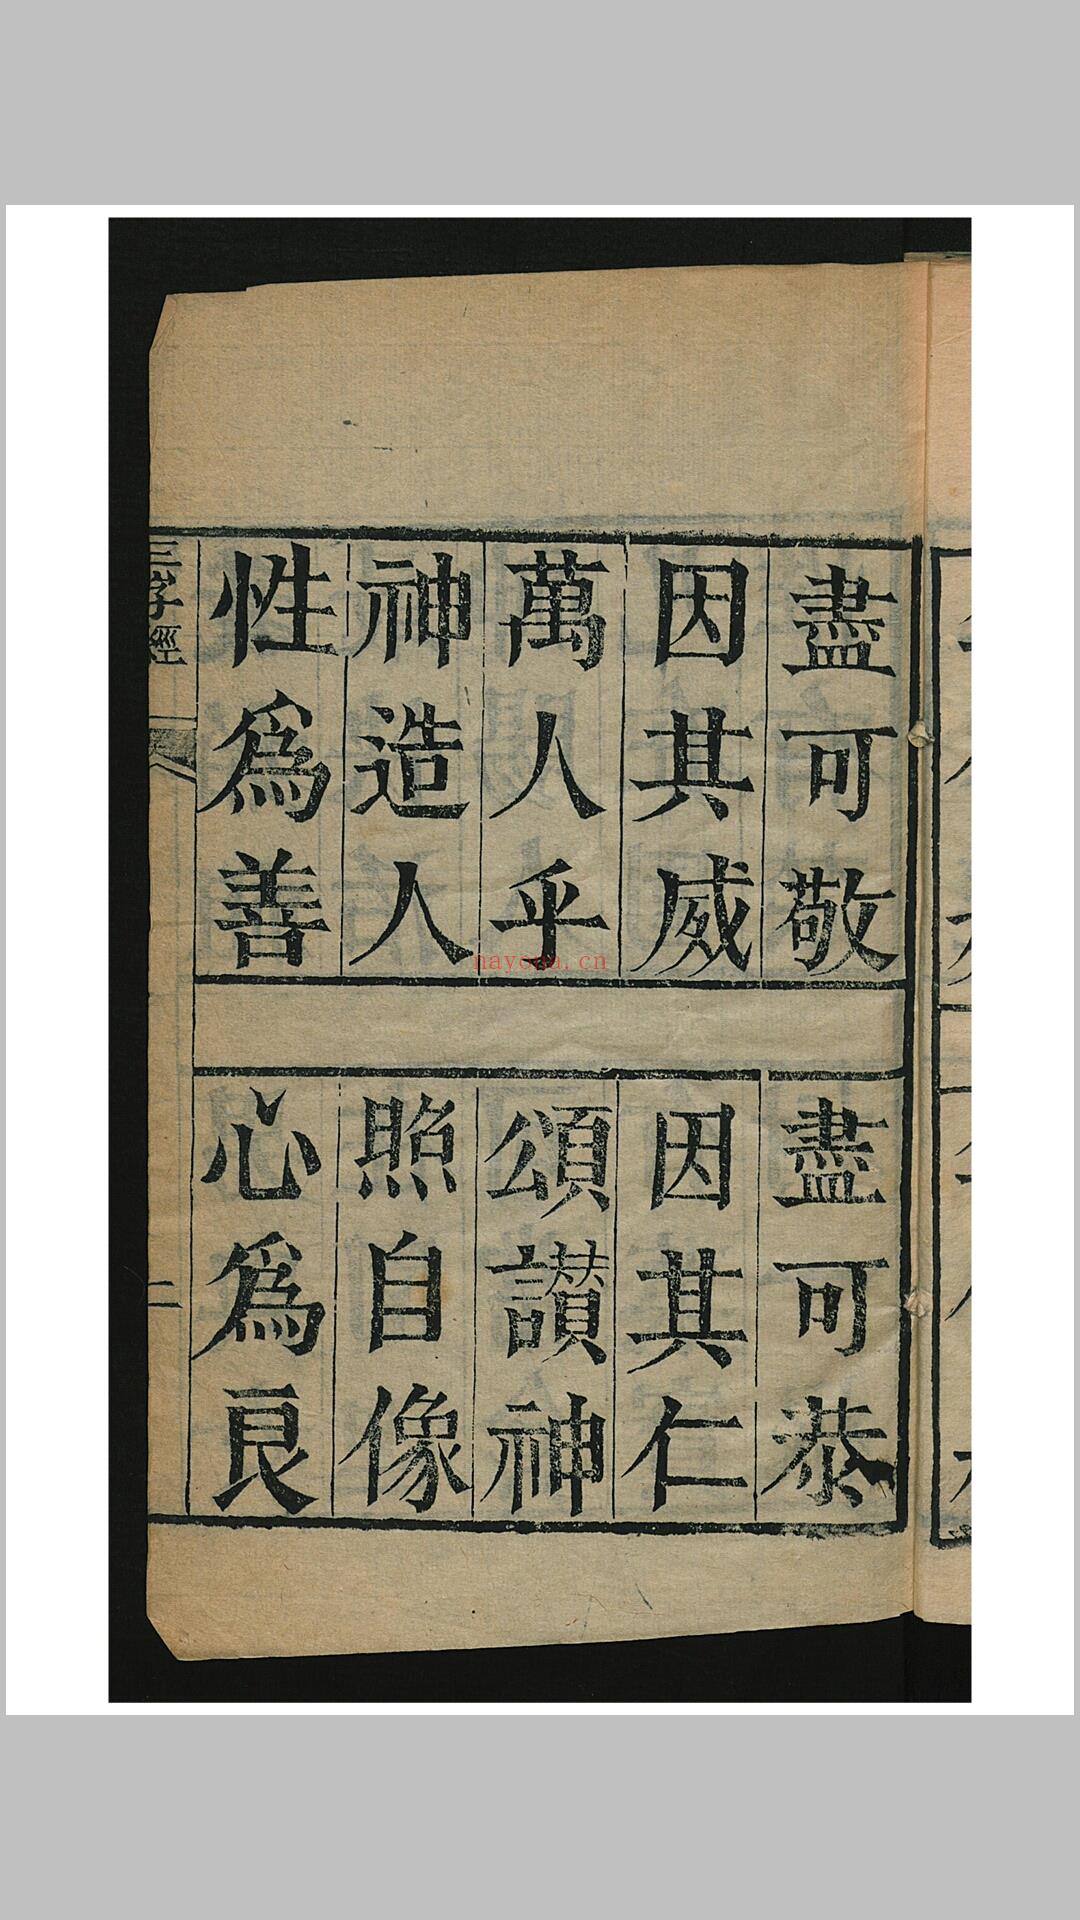 盡可敬
盡可恭
因其威
因其仁
萬人乎
頌讃神
神造人
照自像
性爲善
心爲良
三字經
二
nayona.cn